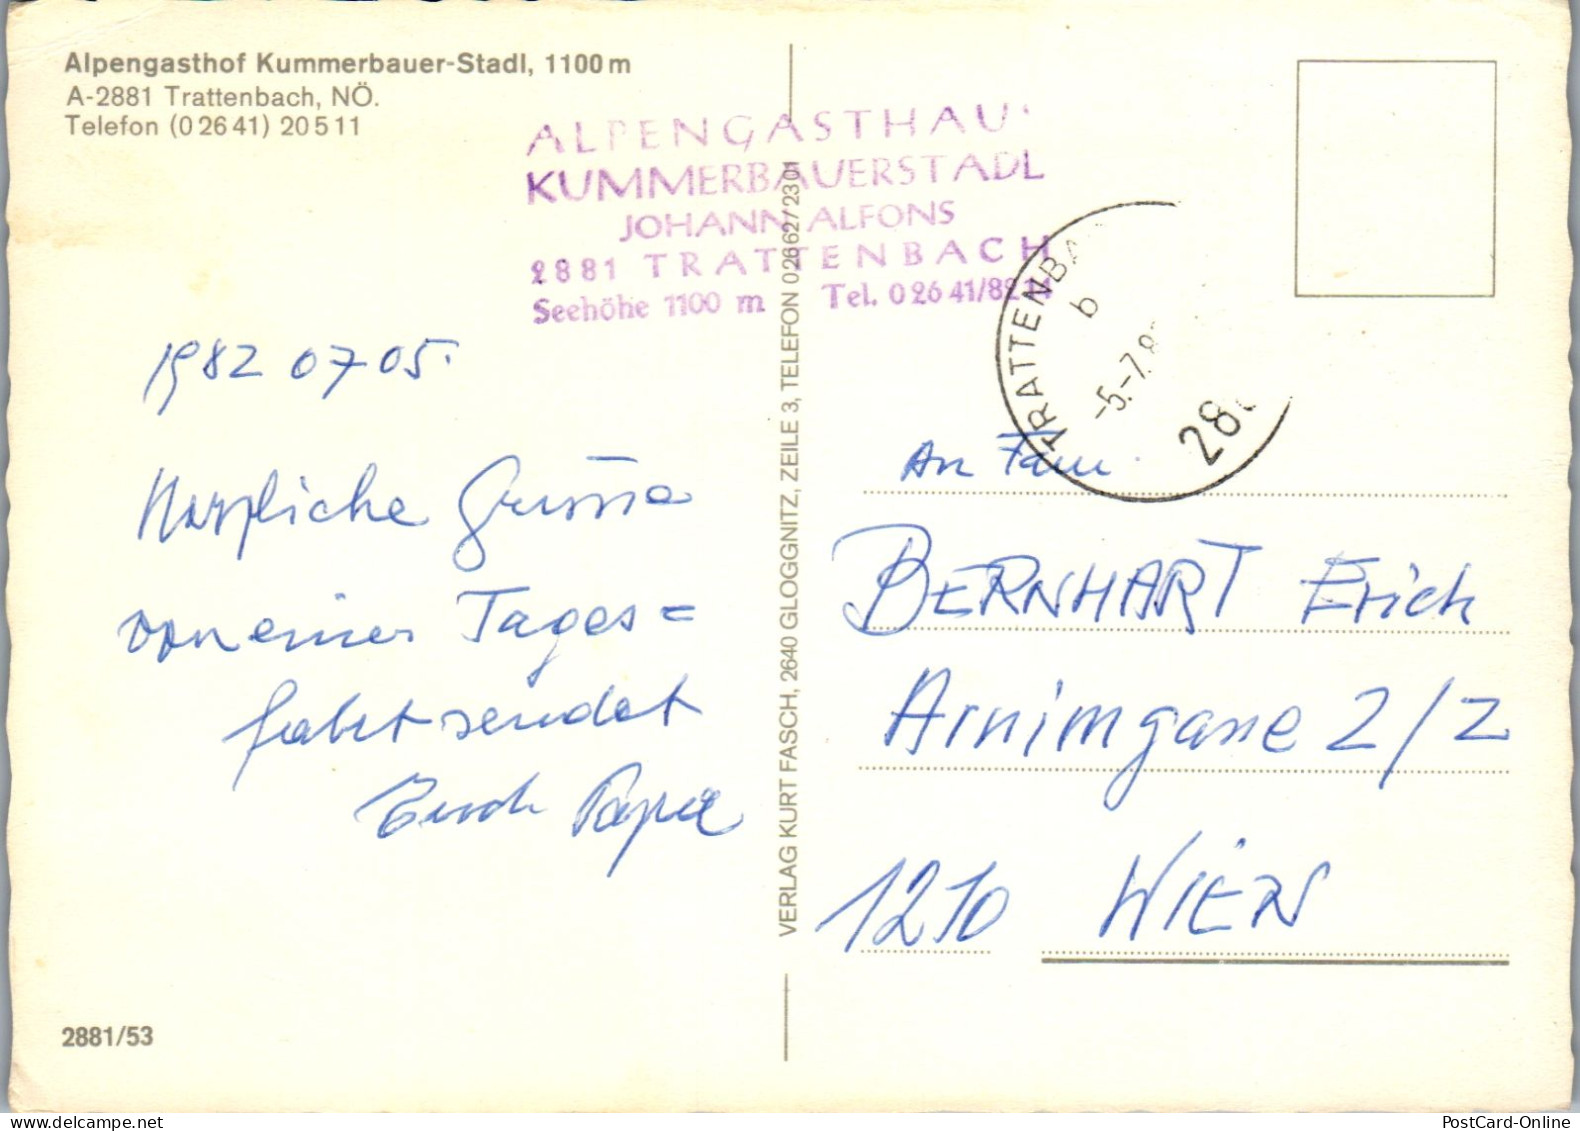 Alpengasthof Kummerbauer-Stadl, 1100 m
A-2881 Trattenbach, NÖ.
Telefon (0 26 41) 20 5 11
ALPENGASTHAU
KUMMERBAUERSTADL
JOHANN ALFONS
2881 TRATTENBACH
Seehöhe 1100 m Tel. 0 26 41/8214
TRATTENBA
b
-5.-7.8
28
1982 07 05.
Herzliche Grüsse
von einer Tages=
fahrt sendet
Euch Papa
VERLAG KURT FASCH, 2640 GLOGGNITZ, ZEILE 3, TELEFON 02662/2301
An Fam.
BERNHART Erich
Arnimgasse 2/2
1210 WIEN
2881/53
www.delcampe.net
PostCard-Online